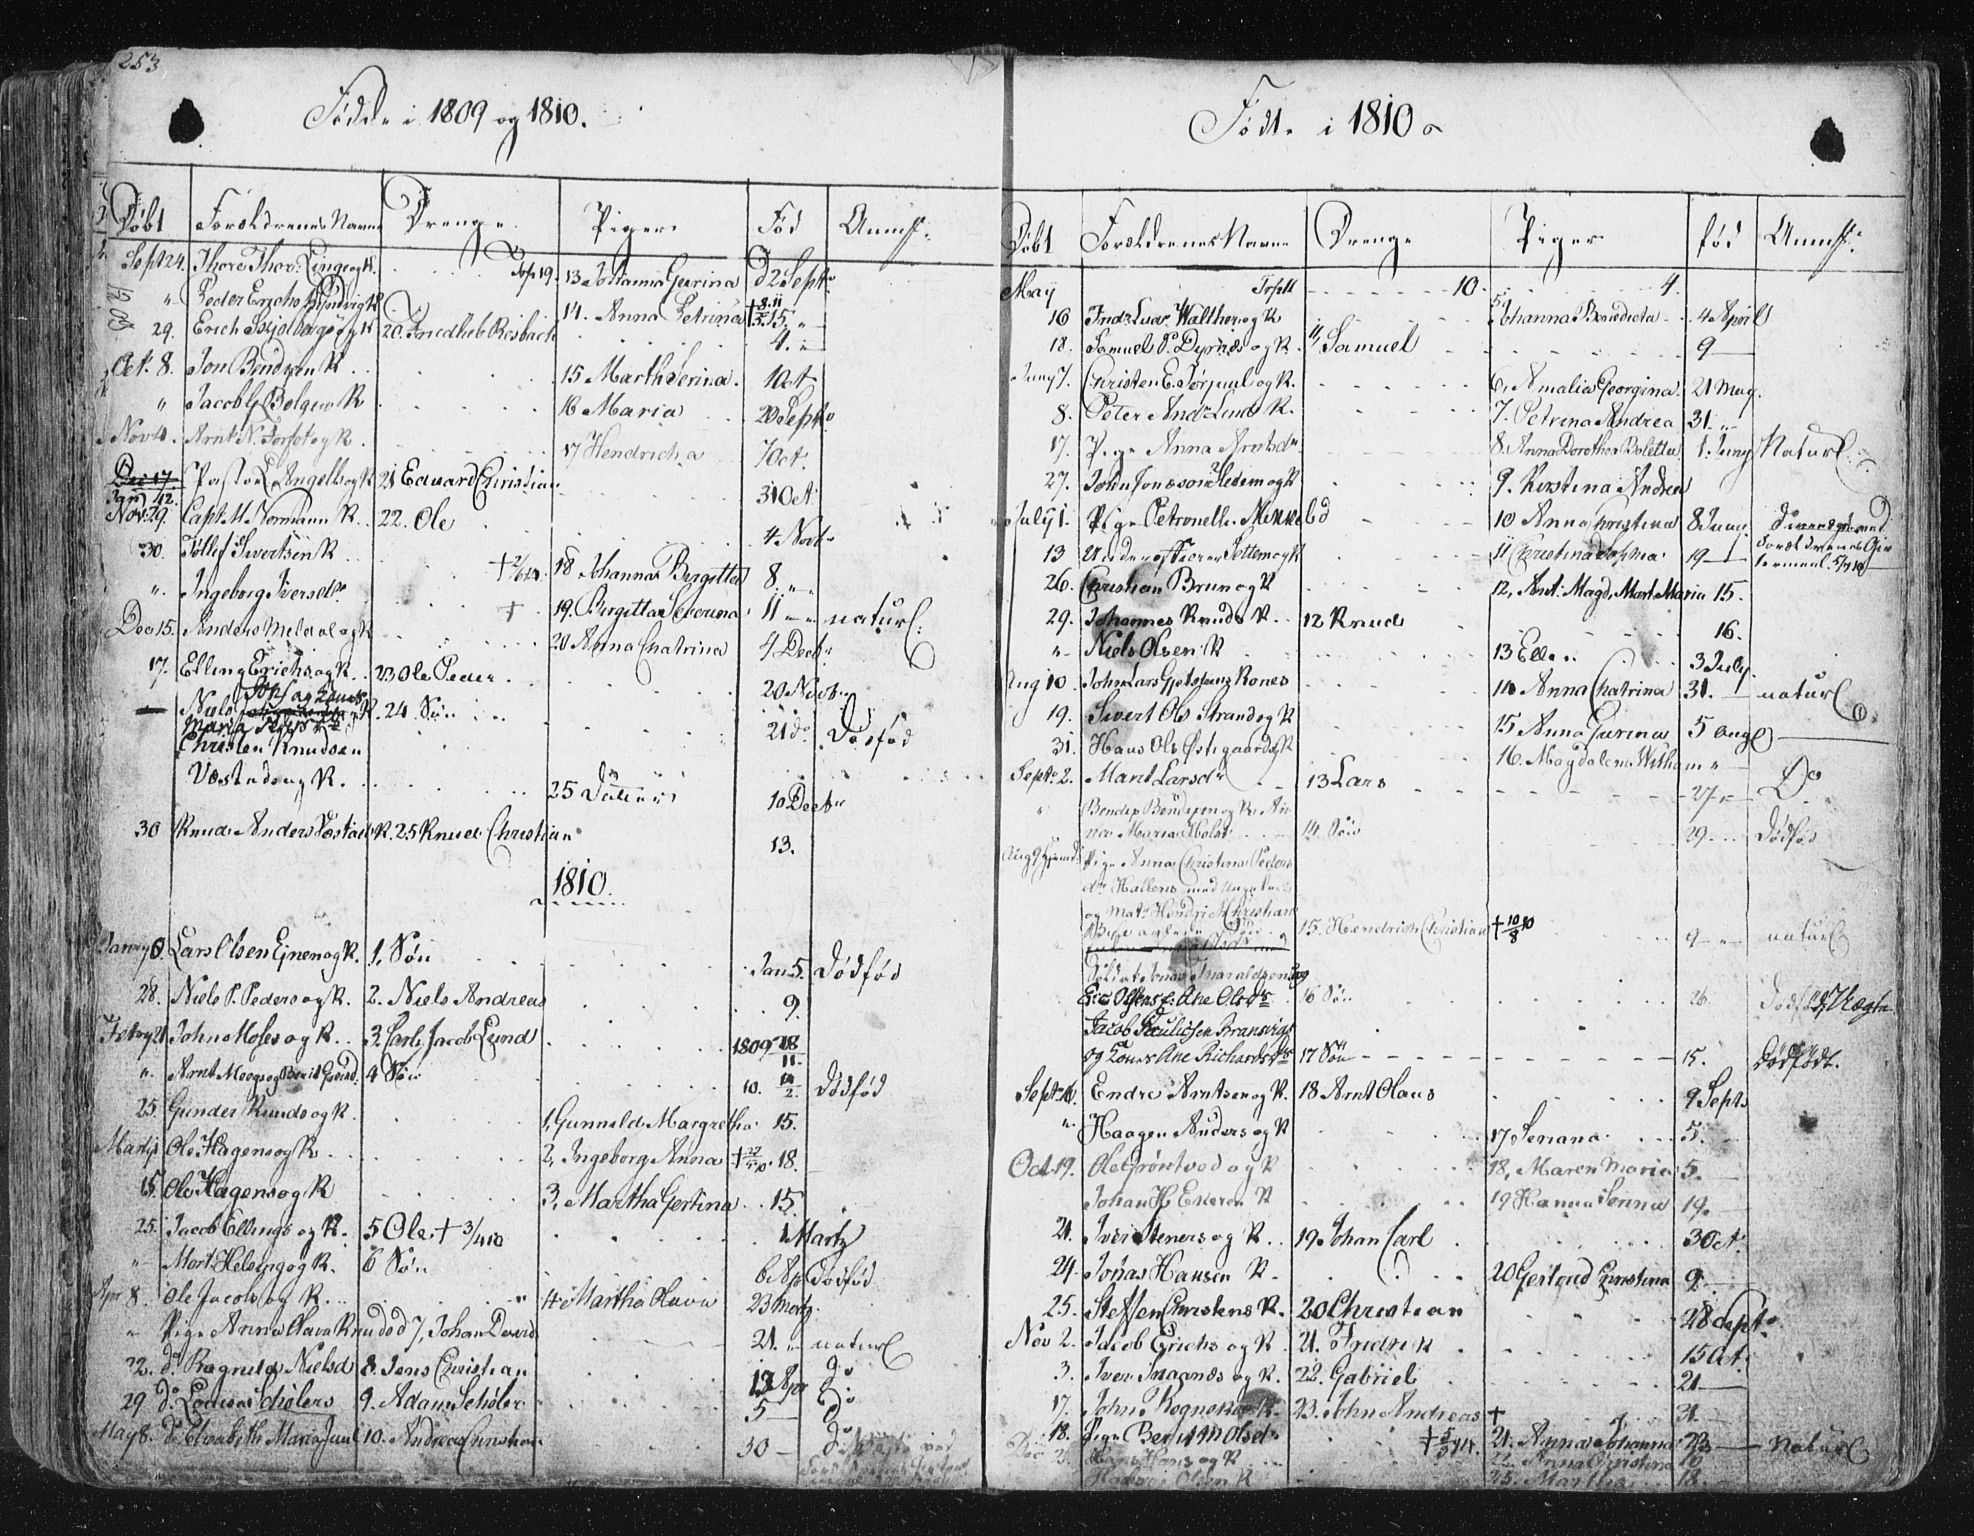 253
Fødde i 1809 og 1810.
Døbt Forældrenes Navne Drenge Piger Fød Anm.
Sept 24. Thore Thor: Linge og K. Trsp 19. 13 Johanna Gurina d 2 Sept
" Peder Erichs og K 14. Anna Petrina † 15. "
29. Erich og K 20. Friedlieb Rosbach 4. "
Oct. 8. Jon Bendixen K. 15 Martha Serina. 1 Oct.
" Jacob G Bolgen K 16 Maria 20 Sept
Nov 4. Arnt N. Forset og K. 17 Hendricha 7 Oct.
Dec 17. Pastor L Angell og K 21 Eduard Christian 31 Oct
Nov. 29. Capt. M. Normann K. 22. Ole 4 Nov
30. Tollef Sivertsen K. † 18 Johanna Birgitta 8. "
". Ingeborg Iversd. † 19. Birgitta Severina 11 " naturl:
Dec 15. Anders Meldal og K 20 Anna Chatrina 4 Decb
17. Elling Erichs og K. 23 Ole Peder. 20 Novb
Niels K. 24 Søn 21 d Dødfød
Christen Knudsen
Væstad og K. 25 10 Decb
30 Knud Anders Væstad K. 25 Knud Christian 13.
1810.
Janv 8. Lars Olsen Ejnen og K. 1, Søn Jan 5. Dødfød
28. Niels P. Peders og K. 2. Niels Andreas 9.
Febr 21 John Moses og K. 3. Carl Jacob Lund 1809 18/11
" Arnt Moogs og Berit 4 Søn 10. 14/2 Dødfød
25. Gunder Knuds og K. 1, Gunnild Margretha 15.
Marty Ole Hagens og K. 2, Ingeborg Anna † 18.
15. Ole Hagens og K 3, Martha Gertina 15.
25. Jacob Ellings og K. 5 Ole † 3/4 10 1 Marts
" Mort. Helsing og K. 6 Søn 6 Apr Dødfød
Apr 8. Ole Jacobs og K. 4 Martha Olava 23 Marty.
" Pige Anna Olava Knudsd 7, Johan David 21. " naturl
22. d. Ragnild Nielsd 8. Jens Christian 13 Apr do
29 do Lovisa Schølers 9. Adam Schøler 5 Do
May 8. do Elisabeth Maria Juul 10. Andreas Christian 30 do
Født i 1810
Døbt Forældrenes Navne Drenge Piger fød Anm.
May Trsp 10. 4
16 Fridr Ludv. Walther og K 5, Johanna Benedicta 4 April
18. Samuel P. Dyrnæs og K 11, Samuel 9
Juny 7. Christen E. Sørpul og K. 6, Amalia Georgina 21 May.
8. Peter Andr Lund K. 7. Petrina Andrea 31. "
17. Pige Anna Arntsdr 8. Anna Dorothea Boletta 1. Juny Naturl
27. John Jonæson Hedem og K 9. Kirstina Andrea
July 1. Pige Petronelle Mikkelsd 10 Anna Christina 8 Juni
13 Underofficeer Settem og K 11 Christina Sophia 19
26. Christian Brun og K 12, Ant. Magd. Mart. Maria 15.
29. Johannes Knuds K. 12 Knud 16.
" Niels Olsen K 13 Ellen 3 July
Aug 10. John Lars Rones 14 Anna Chatrina 31. naturl
19. Sivert Ols Strand og K 15 Anna Gurina 5 Aug
31. Hans Ols Østigaard K 16. Magdalena Wilhem "
Sept. 2. Marit Larsdr 13 Lars 27 " Do
" Bendix Bendixen og K. Anna Maria Holst 14. Søn 29. Dødfød
Aug 9 Pige Anna Christina Peders
dr Hallens med
og Mat. Hendri Christian 15. Hendrich Christian † 10/8 10 9 " naturl
Soldat Jonas Haraldsen og
Ane Olsdr 16 Søn 26. Dødfød
Jacob Paulicsen Bransvig
og Kones Ane Richardsdr 17 Søn 15. Dødfødt.
Sept. 16. Endre Arntsen og K. 18 Arnt Olaus 9 Sept
" Haagen Anders og K 17 Seriana 5.
Oct 19. Ole Grøntvad og K 18, Maren Maria 5.
Johan H Ekeren K 19 Hanna Sorina 19.
21. Iver Steners og K. 19 Johan Carl 3 Oct.
24. Jonas Hansen K. 20 Gertrud Christina 9.
25. Steffen Christens K. 20 Christian 28 Sept.
Nov 2. Jacob Erichs og K. 21. Fridrik 15 Oct.
3. Iver Snaanæs og K. 22. Gabriel 21
17. John Rognskog K. 23. John Andreas † 31.
18. Pige Berit M Olsdr † 21. Anna Johanna 23 naturl
Dec 3. Hans Hans og K 22. Anna Christina 10
Halvor Olsen K 23. Martha 18.